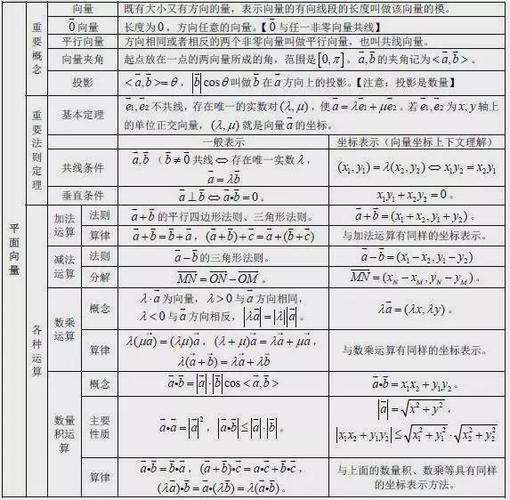 平面向量
重要概念
向量 既有大小又有方向的量，表示向量的有向线段的长度叫做该向量的模。
0⃗向量 长度为0，方向任意的向量。【0⃗与任一非零向量共线】
平行向量 方向相同或者相反的两个非零向量叫做平行向量，也叫共线向量。
向量夹角 起点放在一点的两向量所成的角，范围是[0,π]。a⃗,b⃗的夹角记为<a⃗,b⃗>。
投影 <a⃗,b⃗>=θ，|b⃗|cosθ叫做b⃗在a⃗方向上的投影。【注意：投影是数量】
重要法则定理
基本定理 e⃗₁,e⃗₂不共线，存在唯一的实数对(λ,μ)，使a⃗=λe⃗₁+μe⃗₂。若e⃗₁,e⃗₂为x,y轴上
的单位正交向量，(λ,μ)就是向量a⃗的坐标。
一般表示 坐标表示（向量坐标上下文理解）
共线条件 a⃗,b⃗（b⃗≠0⃗共线⇔存在唯一实数λ，
a⃗=λb⃗ (x₁,y₁)=λ(x₂,y₂)⇔x₁y₂=x₂y₁
垂直条件 a⃗⊥b⃗⇔a⃗•b⃗=0。 x₁y₁+x₂y₂=0。
各种运算
加法运算 法则 a⃗+b⃗的平行四边形法则、三角形法则。 a⃗+b⃗=(x₁+x₂,y₁+y₂)。
算律 a⃗+b⃗=b⃗+a⃗，(a⃗+b⃗)+c⃗=a⃗+(b⃗+c⃗) 与加法运算有同样的坐标表示。
减法运算 法则 a⃗-b⃗的三角形法则。 a⃗-b⃗=(x₁-x₂,y₁-y₂)
分解 MN⃗=ON⃗-OM⃗。 MN⃗=(x_N-x_M,y_N-y_M)。
数乘运算 概念 λ·a⃗为向量，λ>0与a⃗方向相同，
λ<0与a⃗方向相反，|λa⃗|=|λ||a⃗|。 λa⃗=(λx,λy)。
算律 λ(μa⃗)=(λμ)a⃗，(λ+μ)a⃗=λa⃗+μa⃗，
λ(a⃗+b⃗)=λa⃗+λb⃗ 与数乘运算有同样的坐标表示。
数量积运算 概念 a⃗•b⃗=|a⃗|·|b⃗|cos<a⃗,b⃗> a⃗•b⃗=x₁x₂+y₁y₂。
主要性质 a⃗•a⃗=|a⃗|²，|a⃗•b⃗|≤|a⃗|·|b⃗|。 |a⃗|=√(x²+y²)，
|x₁x₂+y₁y₂|≤√(x₁²+y₁²)·√(x₂²+y₂²)
算律 a⃗•b⃗=b⃗•a⃗，(a⃗+b⃗)•c⃗=a⃗•c⃗+b⃗•c⃗，
(λa⃗)•b⃗=a⃗•(λb⃗)=λ(a⃗•b⃗)。 与上面的数量积、数乘等具有同样
的坐标表示方法。